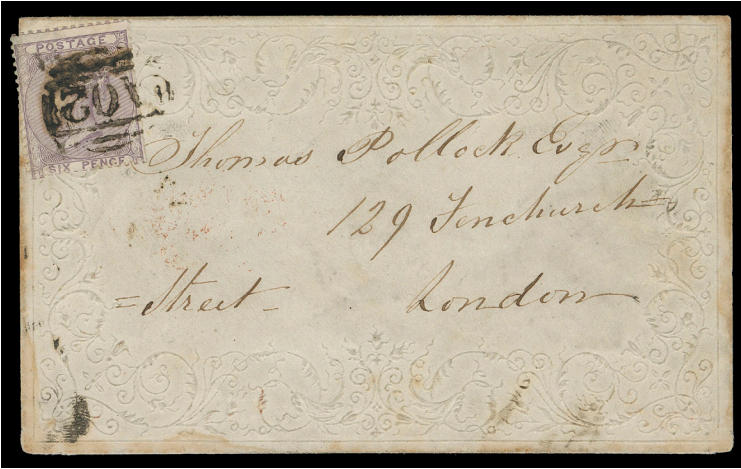 POSTAGE
SIX PENCE
Thomas Pollock Esqr
129 Fenchurch=
=Street
London